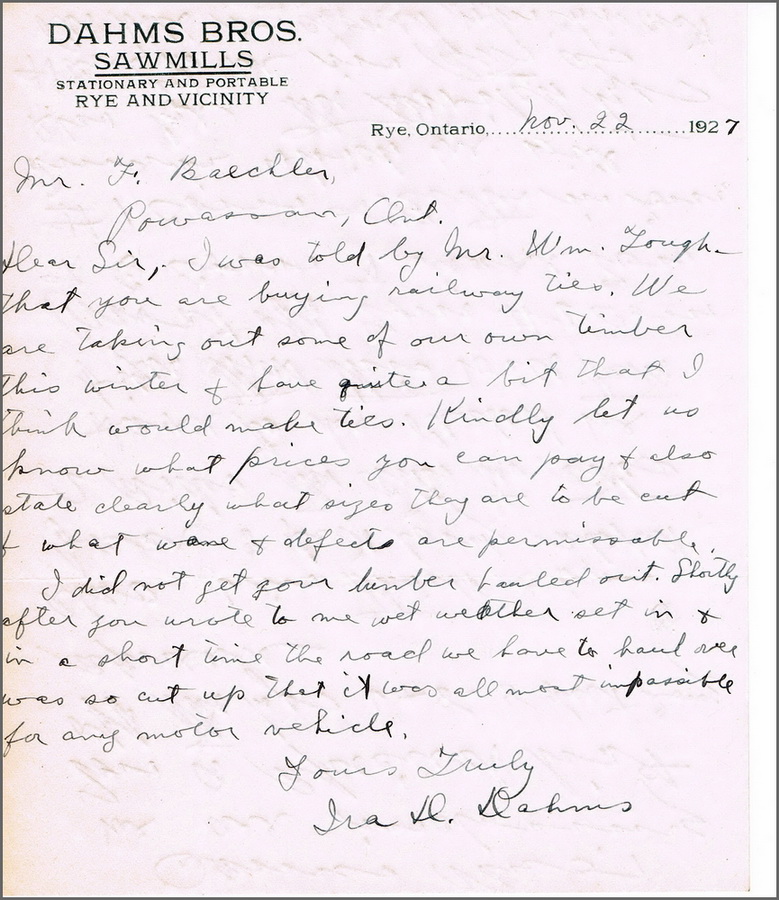 DAHMS BROS.
SAWMILLS
STATIONARY AND PORTABLE
RYE AND VICINITY
Rye, Ontario, Nov. 22 1927
Mr. F. Baechler,
Powassan, Ont.
Dear Sir, I was told by Mr. Wm. Tough
that you are buying railway ties. We
are taking out some of our own timber
this winter & have quite a bit that I
think would make ties. Kindly let us
know what prices you can pay & also
state clearly what sizes they are to be cut
& what wane & defects are permissable.
I did not get your lumber hauled out. Shortly
after you wrote to me wet weather set in &
in a short time the road we have to haul over
was so cut up that it was all most impassible
for any motor vehicle.
Yours Truly
Ira D. Dahms